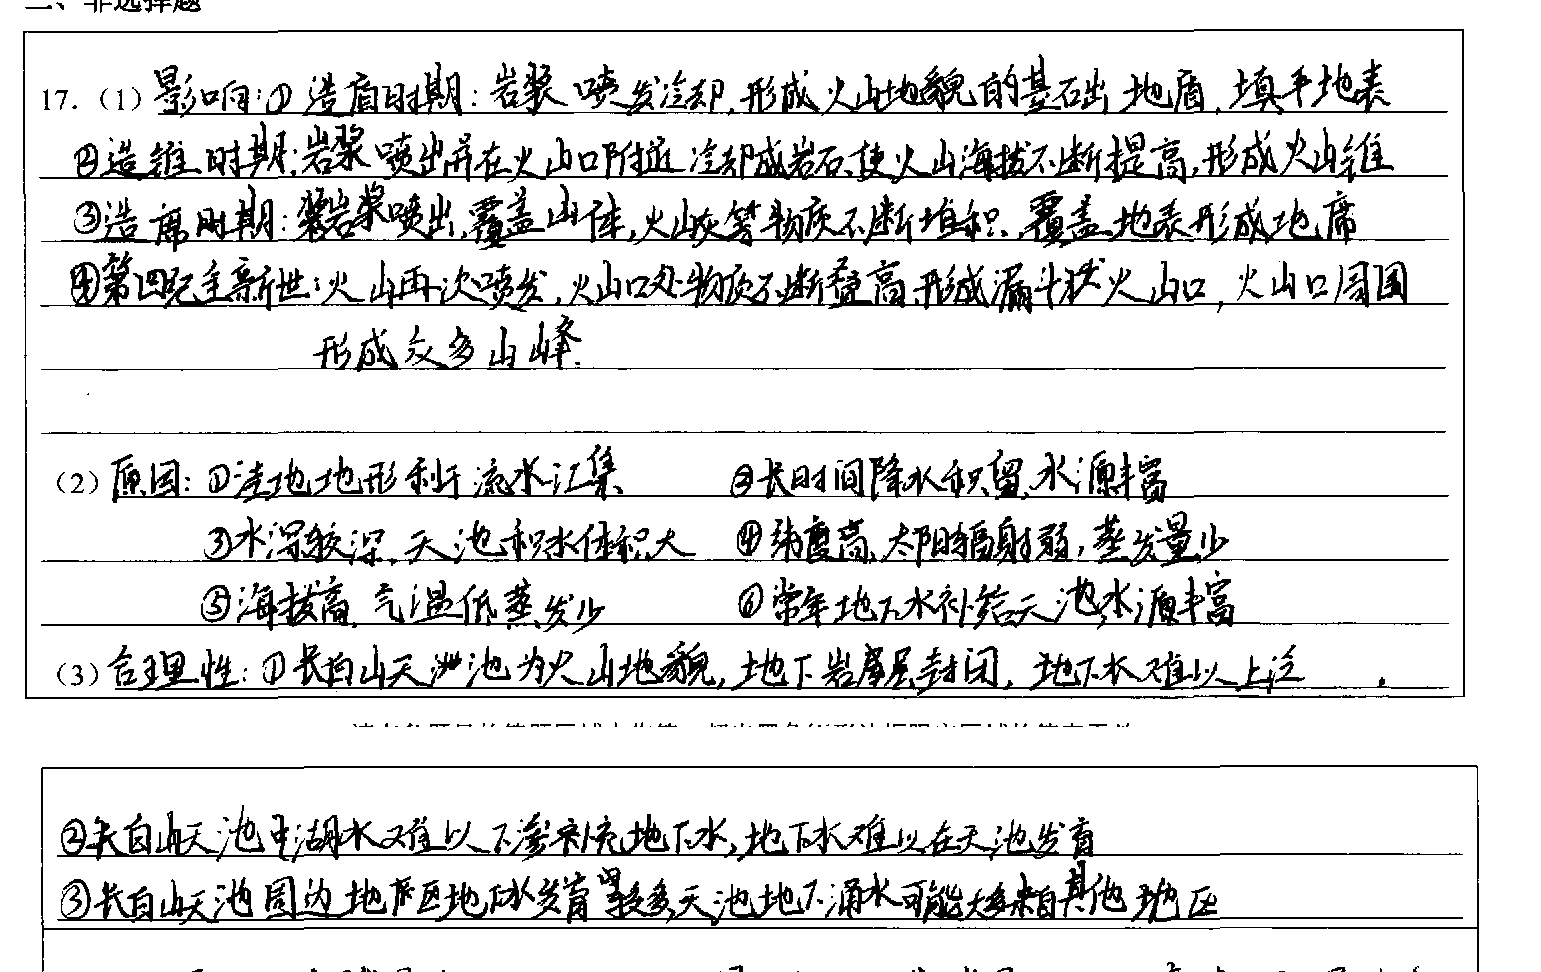 二、非选择题
17.（1）影响：①造盾时期：岩浆喷发冷却，形成火山地貌的基础地盾，填平地表
②造锥时期：岩浆喷出并在火山口附近冷却成岩石，使火山海拔不断提高，形成火山锥
③造席时期：岩浆喷出，覆盖山体，火山灰等物质不断堆积，覆盖地表形成地席
④第四纪全新世：火山再次喷发，火山口处物质不断叠高，形成漏斗状火山口，火山口周围
形成众多山峰.
（2）原因：①洼地地形利于流水汇集 ②长时间降水积留，水源丰富
③水深较深，天池积水体积大 ④纬度高，太阳辐射弱，蒸发量少
⑤海拔高，气温低蒸发少 ⑥常年地下水补给天池，水源丰富
（3）合理性：①长白山天池为火山地貌，地下岩层封闭，地下水难以上泛.
②长白山天池中湖水难以下渗补充地下水，地下水难以在天池发育
③长白山天池周边地区地下水发育较多，天池地下涌水可能大多来自其他地区